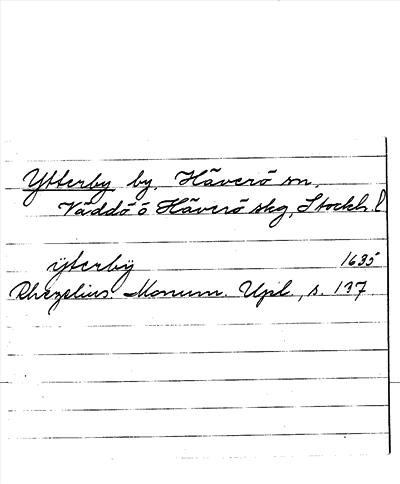 Ytterby by, Häverö sn,
Väddö ö Häverö skg, Stockh. l
ÿtterbÿ 1635
Rhezelius Monum. Upl., s. 137